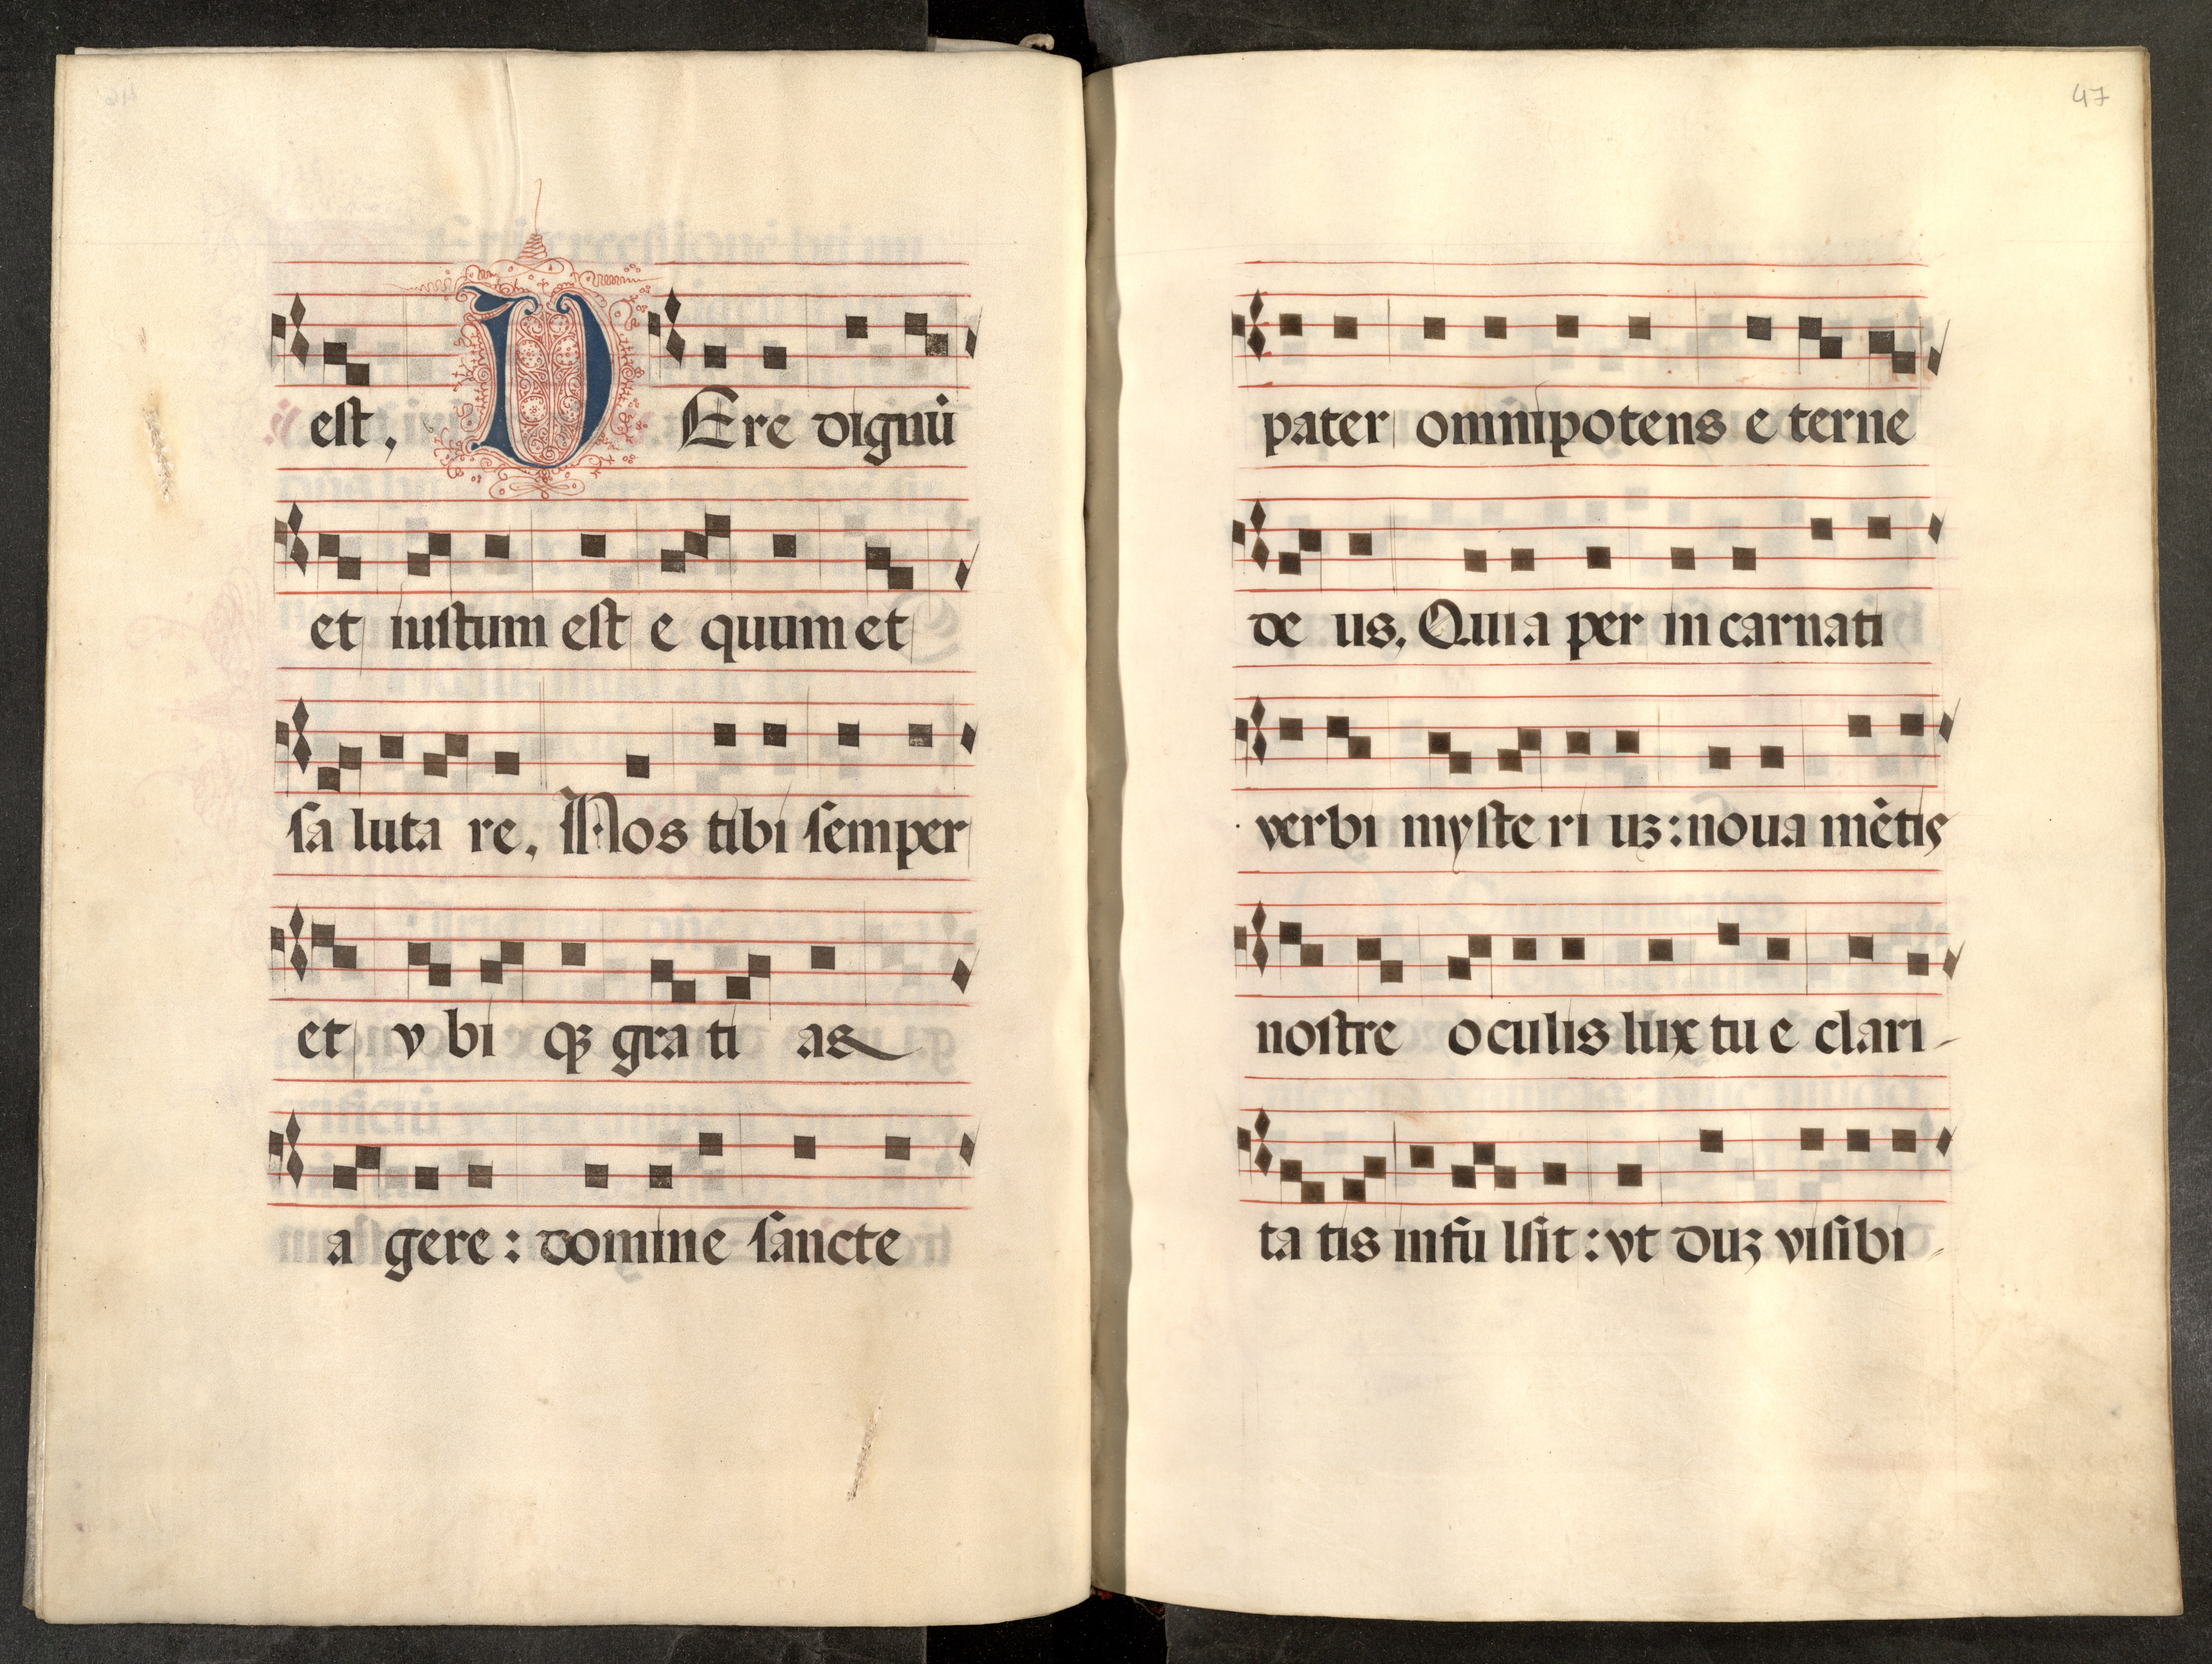 est, VEre dignū
et iustum est e quum et
sa luta re, Nos tibi semper
et v bi qꝫ gra ti as
a gere: domine sancte
47
pater omnipotens e terne
de us, Quia per in carnati
verbi myste ri uꝫ: noua mētis
nostre o culis lux tu e clari-
ta tis infu lsit: vt duꝫ visibi-